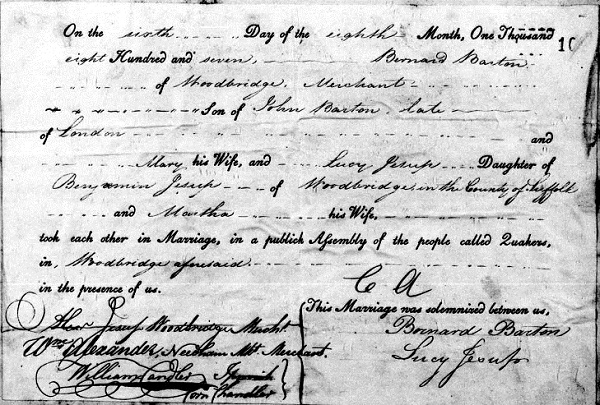 On the sixth Day of the eighth Month, One Thousand
eight Hundred and seven, Bernard Barton
10
of Woodbridge, Merchant
Son of John Barton, late
of London and
Mary his Wife, and Lucy Jesup Daughter of
Benjamin Jesup of Woodbridge in the County of Suffolk
and Martha his Wife,
took each other in Marriage, in a publick Assembly of the people called Quakers,
in, Woodbridge aforesaid
in the presence of us.
C A
This Marriage was solemnized between us,
Jesup Woodbridge Marcht.
Wm Alexander, Needham Mkt Merchant.
William Candler Ipswich
Corn Chandler
Bernard Barton
Lucy Jesup